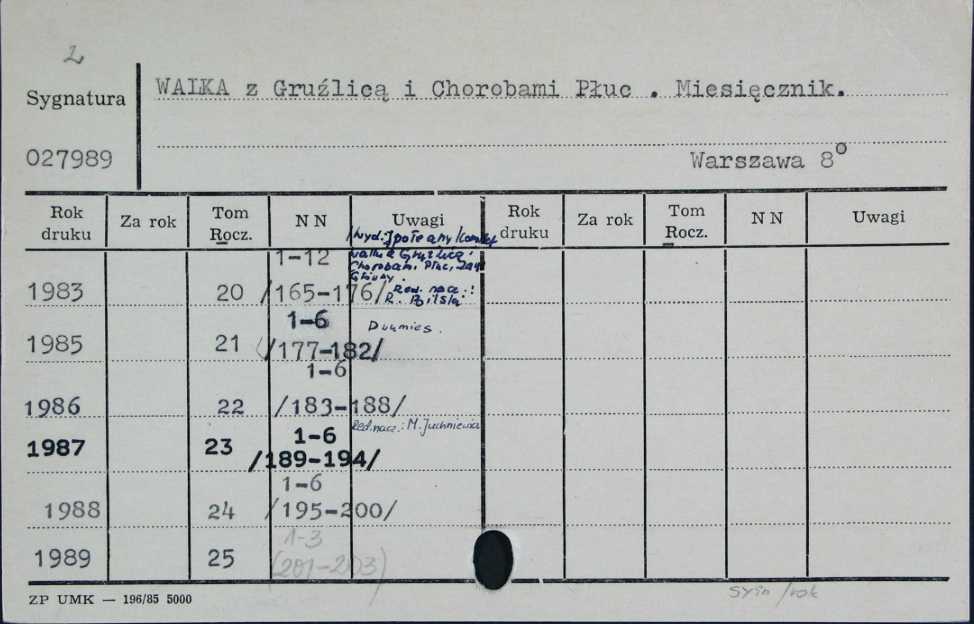 2
Sygnatura
WALKA z Gruźlicą i Chorobami Płuc . Miesięcznik.
027989
Warszawa 8°
Rok druku Za rok Tom Rocz. N N Uwagi Rok druku Za rok Tom Rocz. N N Uwagi
1-12 Wyd.: Społeczny Komitet
Walki z Gruźlicą i
Chorobami Płuc, Zarz.
Główny.
1983 20 /165-176/ Red. nacz.:
R. Bilska
1-6
Dwumies.
1985 21 /177-182/
1-6
1986 22 /183-188/
Red. nacz.: M. Juchniewicz
1-6
1987 23 /189-194/
1-6
1988 24 /195-200/
1-3
1989 25 (201-203)
ZP UMK — 196/85 5000
/rok